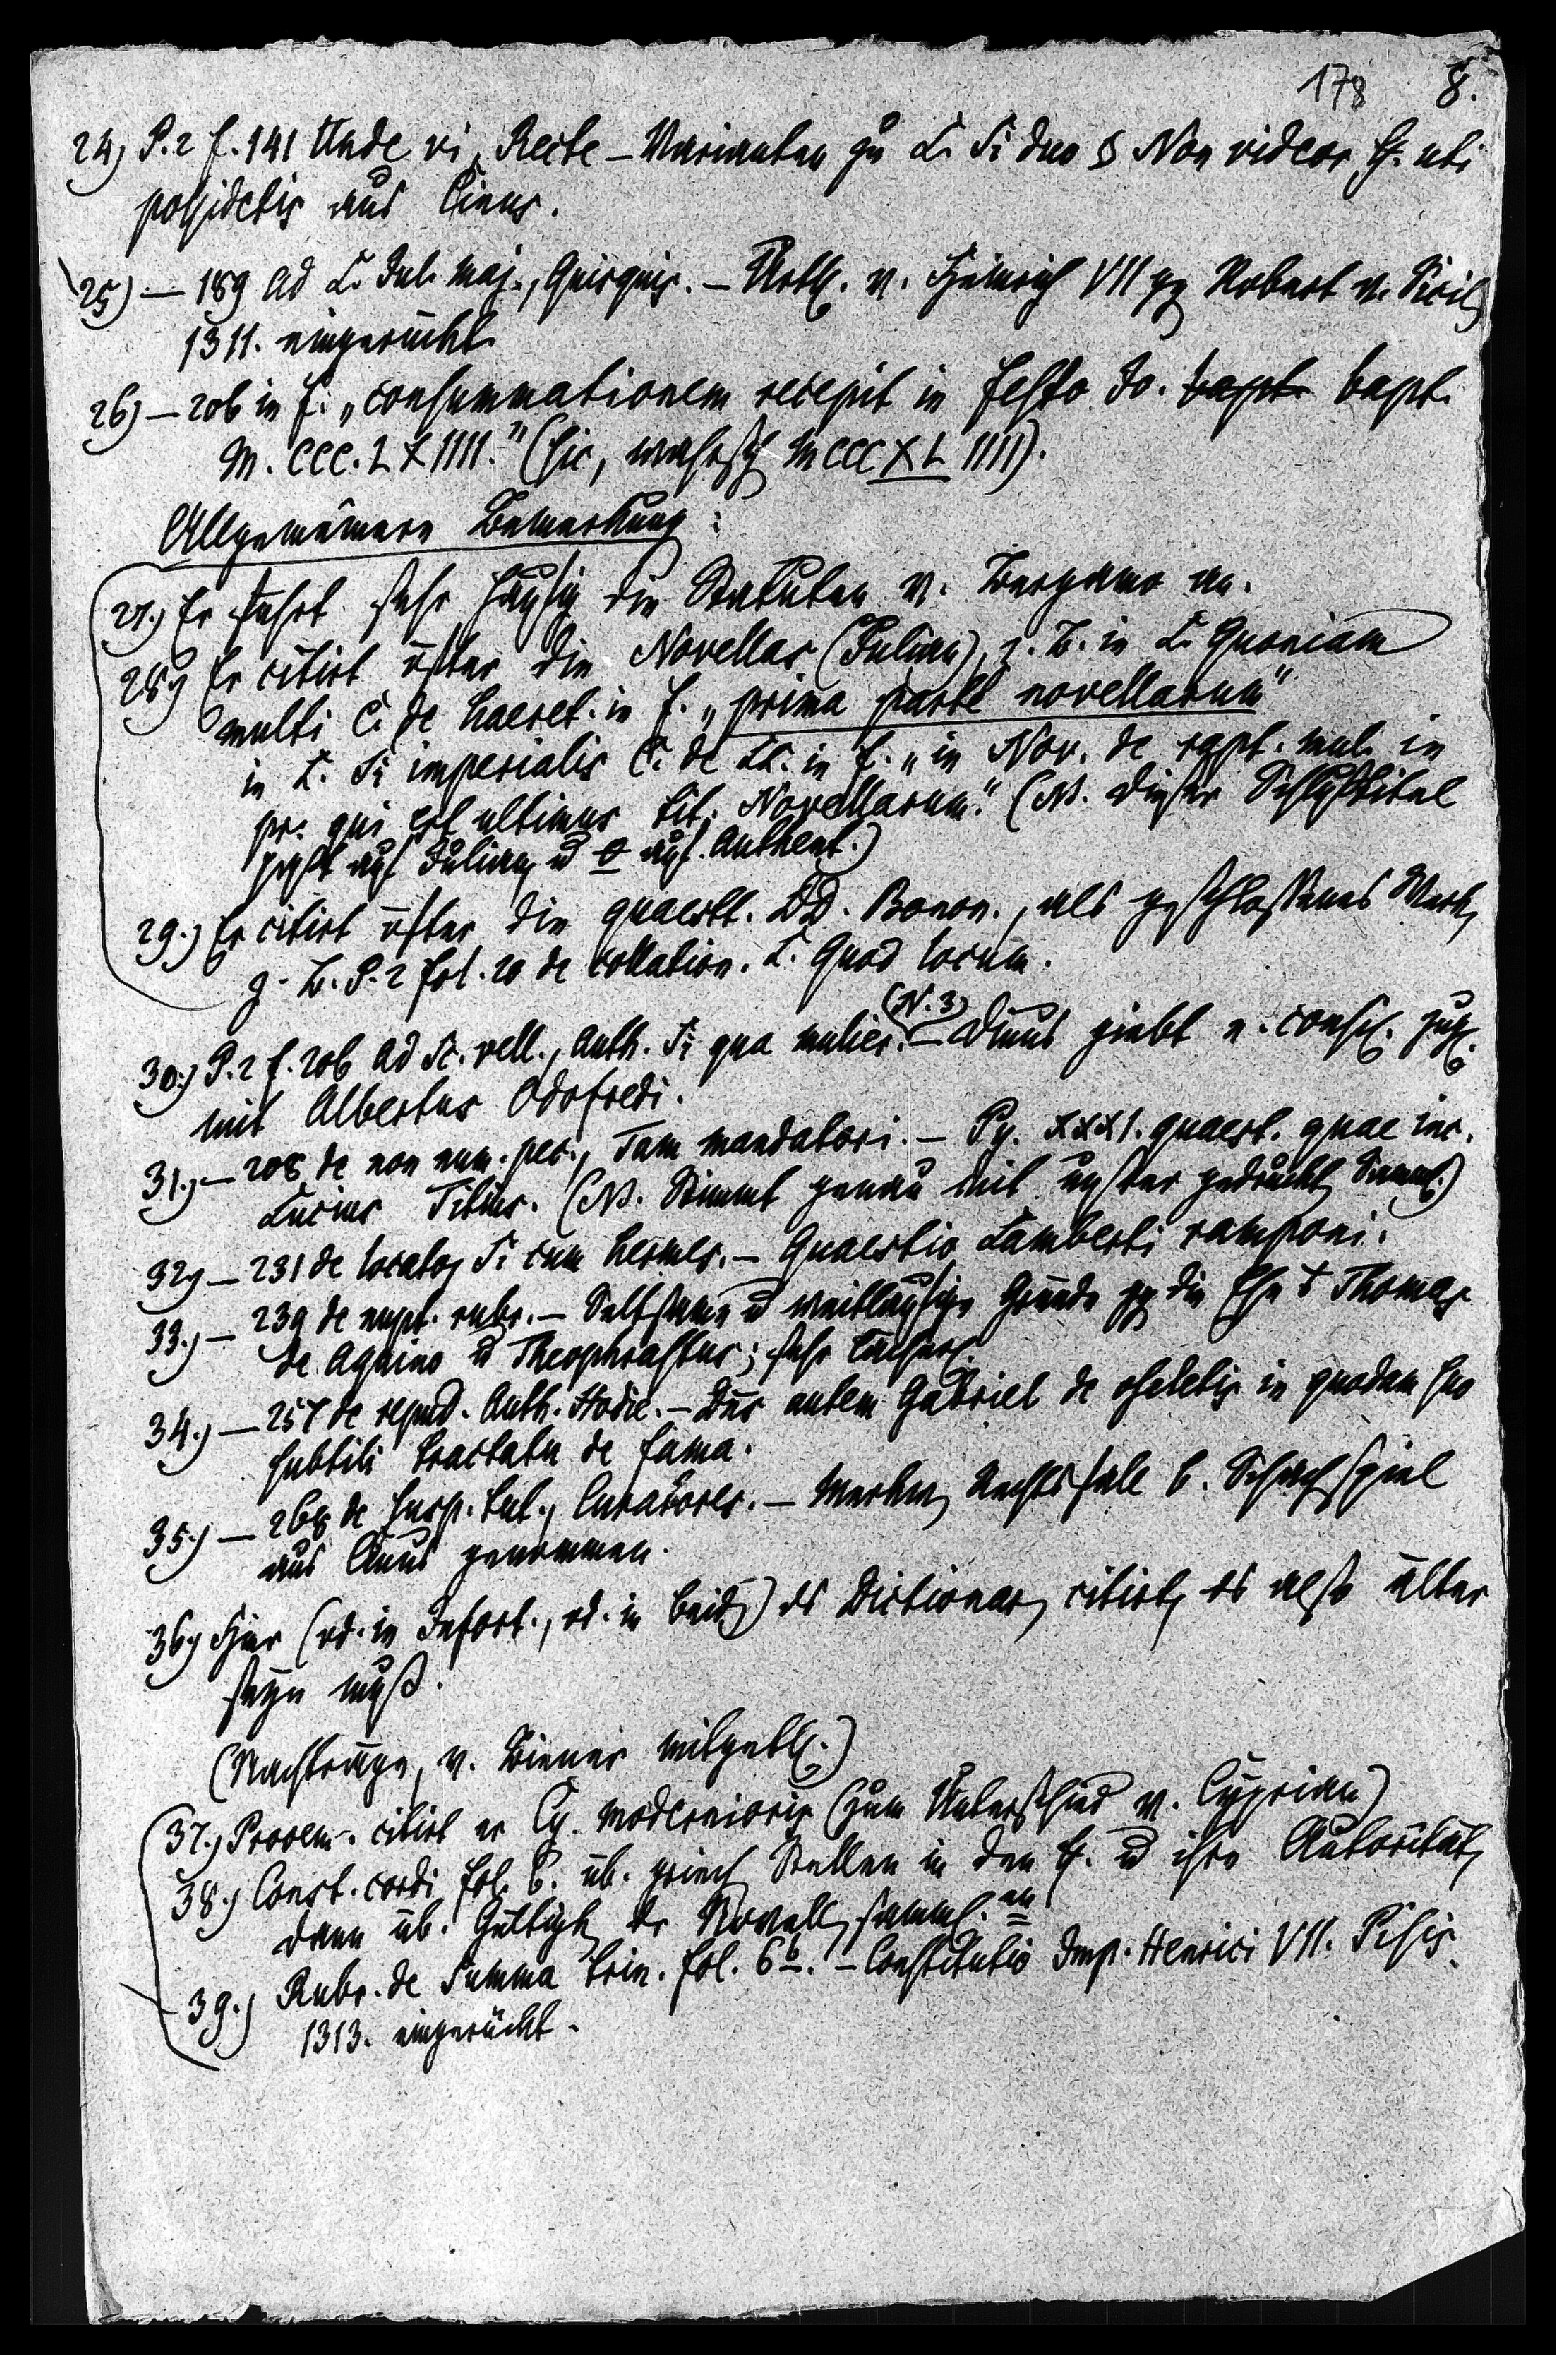 178 8.
24) P. 2 f. 141 Unde vi, Recte – Varianten zu L. Si duo § Non videor ff. uti
possidetis aus Cinus.
25) — 189 ad L. Jul. maj., Quisquis. – Urth. v. Heinrich VII gg Robert v. Sicil.
1311. eingerückt.
26) — 206 in f. „consummationem recepit in festo Jo. bapt. bapt.
M. CCC. LXIIII." (sic, wahrsch MCCCXLIIII).
Allgemeinere Bemerkung:
27.) Er führt sehr häufig die Statuten v. Bergamo an.
28) Er citirt öfter die Novellas (Julian), z. B. in L. Quoniam
multi C. de haeret. in f. „prima parte novellarum"
in L. Si imperialis C. de LL. in f. „in Nov. de rapt. mul. in
pr. qui est ultimus tit. Novellarum." (N. dieser Schlußtitel
paßt auf Julian u auf Authent.)
29.) Er citirt öfter die quaestt. DD. Bonon., als geschlossenes Werk,
z. B. P. 2 fol. 20 de collation. L. Quod locum.
30.) P. 2 f. 206 ad Sc. vell., Auth. Si qua mulier. (N. 3) – Dinus giebt e. consil. zus.
mit Albertus Odofredi.
31.) — 208 de non num. pec., Tam mandatori. – Py. XXXI. quaest. quae inc.
Lucius Titius. (N. Stimmt genau mit unsrer gedruckt Samml.)
32) — 231 de locato, Si cum hermes. – Quaestio Lamberti ramponi.
33.) — 239 de nupt. rubr. – Seltsame u weitläufige Gründe gg die Ehe Thomas
de Aquino u Theophrastus; sehr
34.) — 257 de repud. Auth. Hodie. – Dns autem Gabriel de in quodam suo
subtili tractatu de fama.
35.) — 268 de susp. tut., Curatores. – Merkw Rechtsfall b. Schachspiel
aus Cinus genommen.
36) Hier (od. in Infort., od. in beid) ist Dictionar, citirt, das also älter
seyn muß.
(Nachträge, v. Biener mitgeth.)
37.) Prooem. citirt er Cy. modernioris (zum Unterschied v. Cyprian)
38.) Const. cordi fol. 6. üb. griech Stellen in den ff. u ihre Autorität,
dann üb. Gültigk der Novell samml. en
39.) Rubr. de Summa trin. fol. 6b. – Constitutio Imp. Henrici VII. Pisis.
1313. eingerückt.